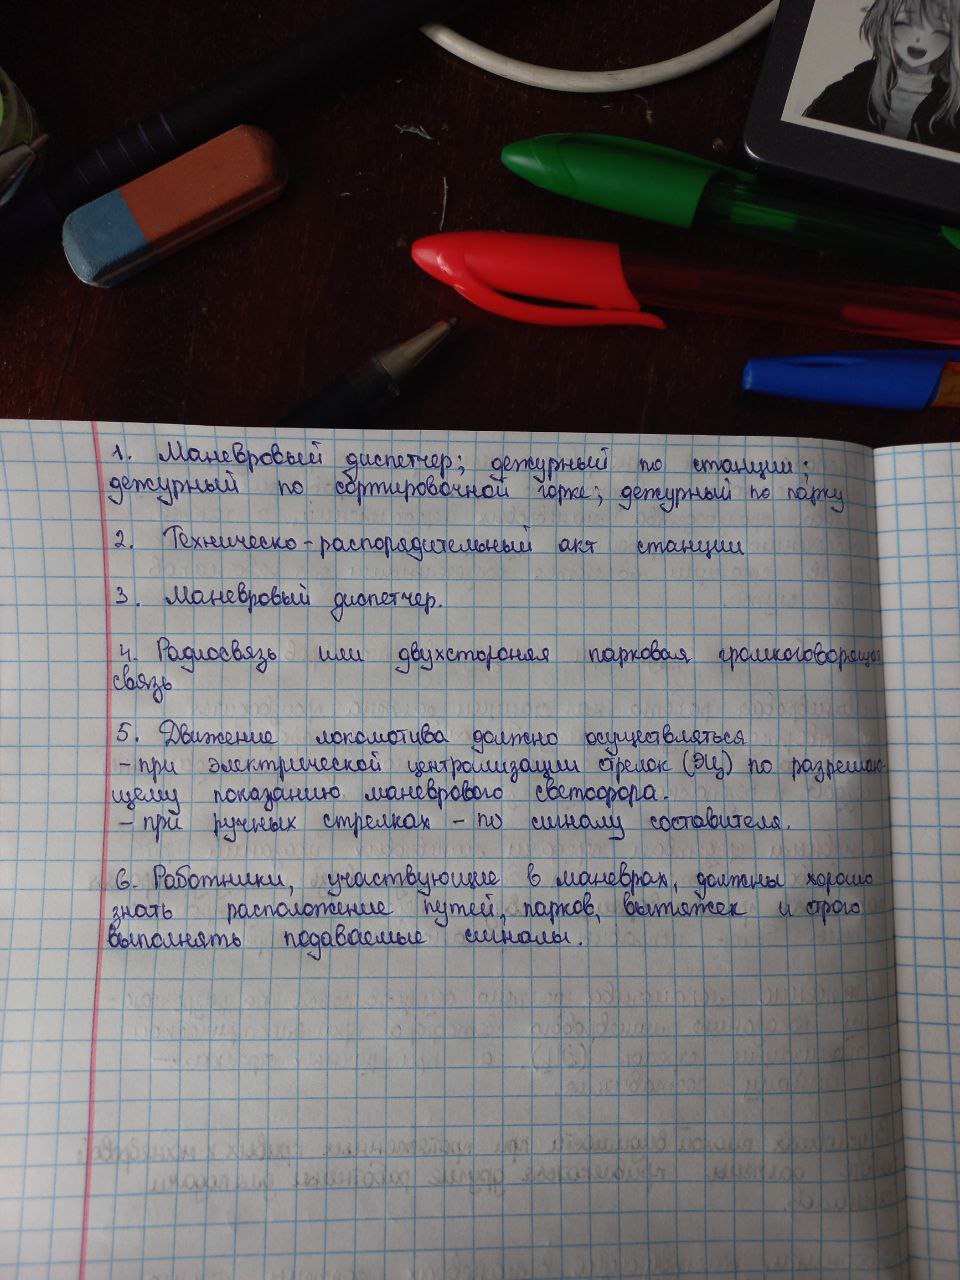 1. Маневровый диспетчер; дежурный по станции;
дежурный по сортировочной горке; дежурный по парку
2. Техническо-распорядительный акт станции
3. Маневровый диспетчер.
4. Радиосвязь или двухстороняя парковая громкоговорящая
связь
5. Движение локомотива должно осуществляться
- при электрической централизации стрелок (ЭЦ) по разрешаю-
щему показанию маневрового светофора.
- при ручных стрелках - по сигналу составителя.
6. Работники, участвующие в маневрах, должны хорошо
знать расположение путей, парков, вытяжек и строго
выполнять подаваемые сигналы.